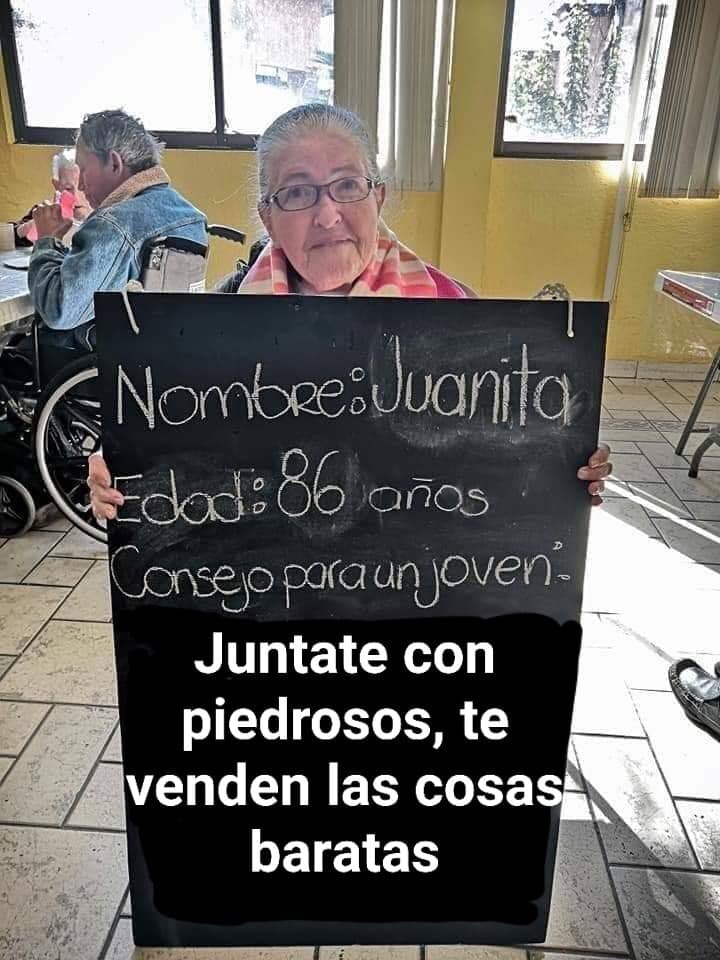 Nombre: Juanita
Edad: 86 años
Consejo para un joven:
Juntate con
piedrosos, te
venden las cosas
baratas